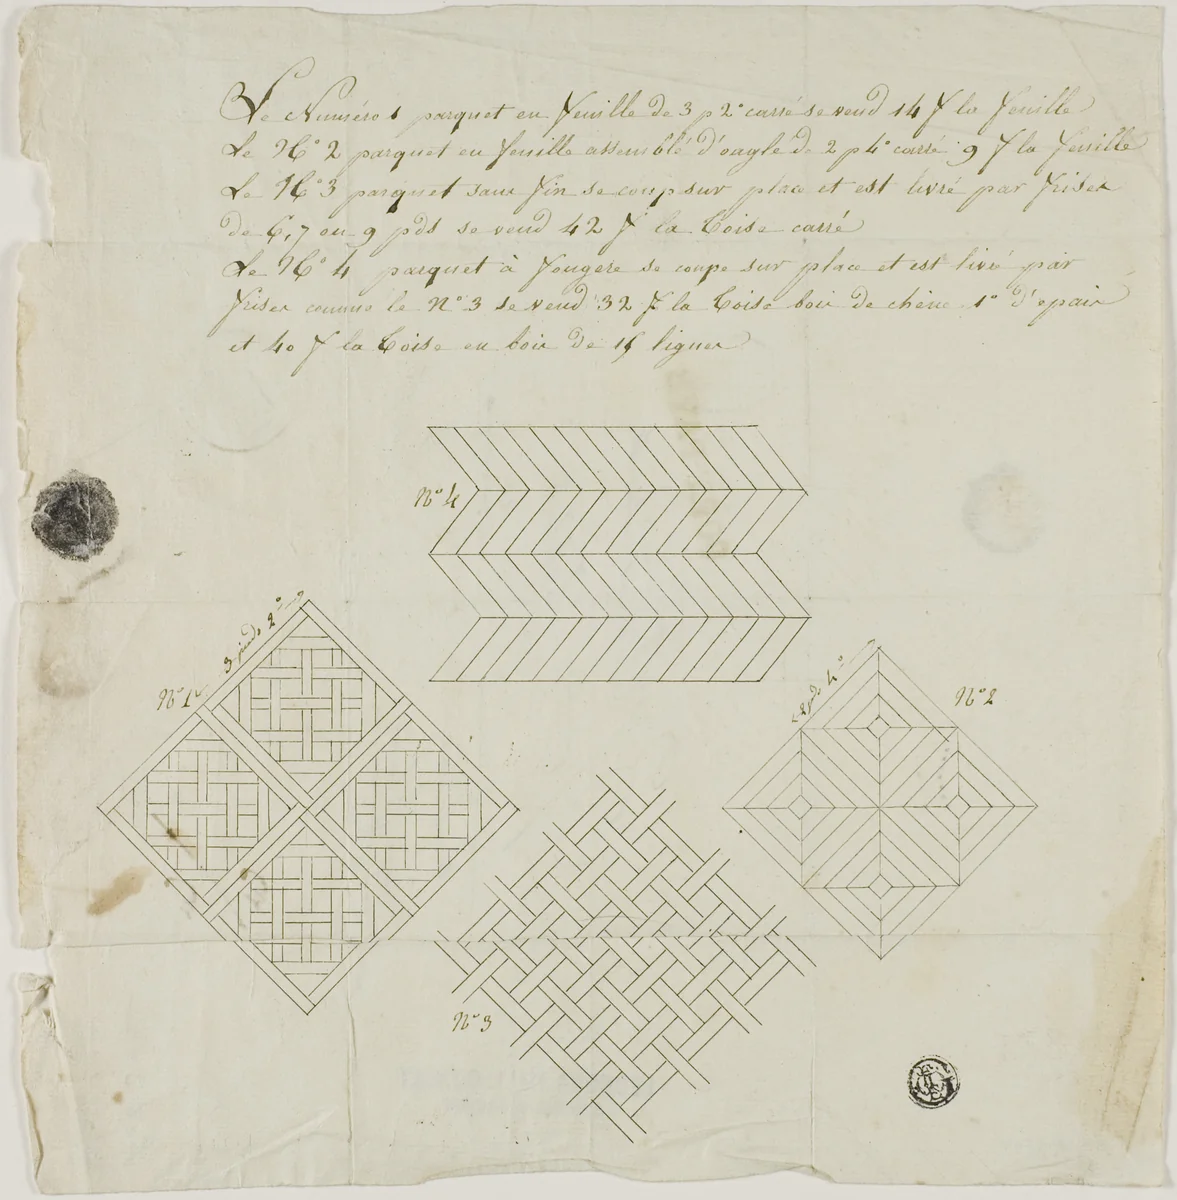 Le Numéro 1 parquet en feuille de 3 p 2° carré se vend 14 f la feuille
Le N° 2 parquet en feuille assemblé d'onglé de 2 p 4° carré 9 f la feuille
Le N° 3 parquet sans fin se coup sur place et est livré par frises
de 6, 7 ou 9 pds se vend 42 f la toise carré
Le N° 4 parquet à fougere se coupe sur place et est livré par
frises comme le N° 3 se vend 32 f la toise bois de chêne 1° d'epais
et 40 f la toise en bois de 15 lignes
N° 4
3 pieds 2°
N° 1
2 pds 4°
N° 2
N° 3